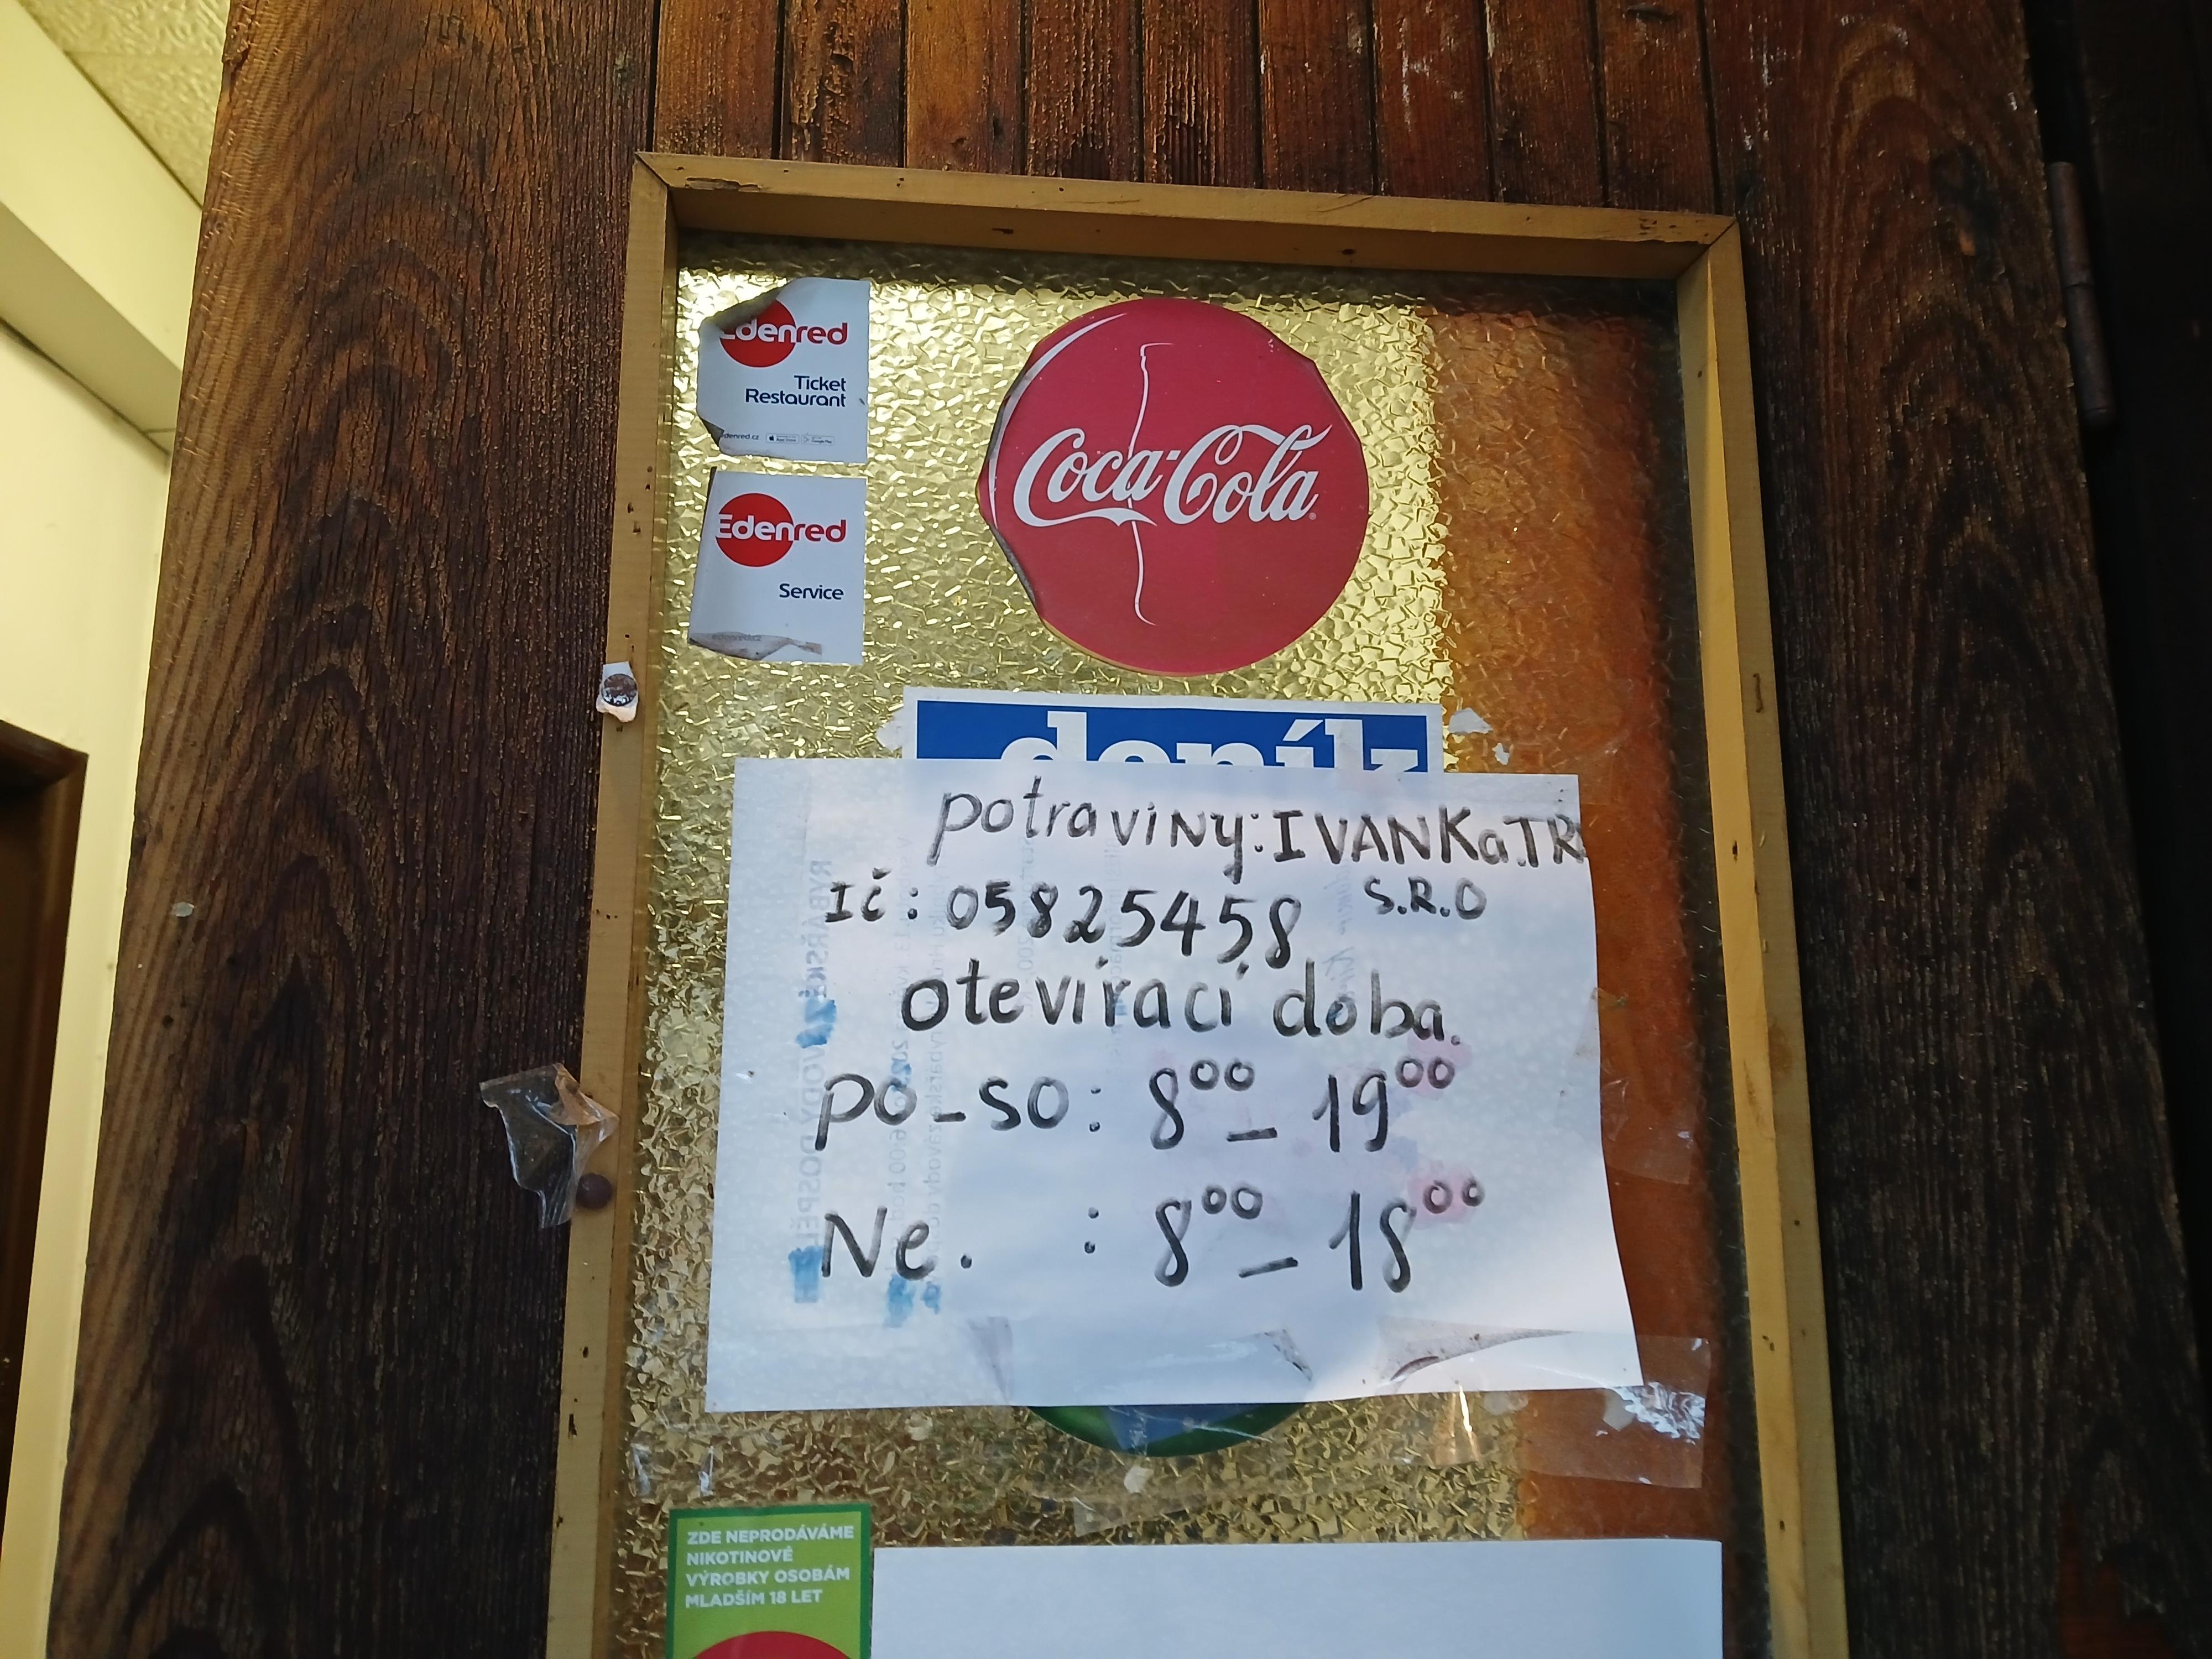 Edenred
Ticket
Restaurant
edenred.cz
Edenred
Service
edenred.cz
Coca-Cola
deník
potraviny: IVANKa.TR
S.R.O
IČ: 05825458
otevírací doba.
po-so: 8⁰⁰ - 19⁰⁰
Ne. : 8⁰⁰ - 18⁰⁰
ZDE NEPRODÁVÁME
NIKOTINOVÉ
VÝROBKY OSOBÁM
MLADŠÍM 18 LET